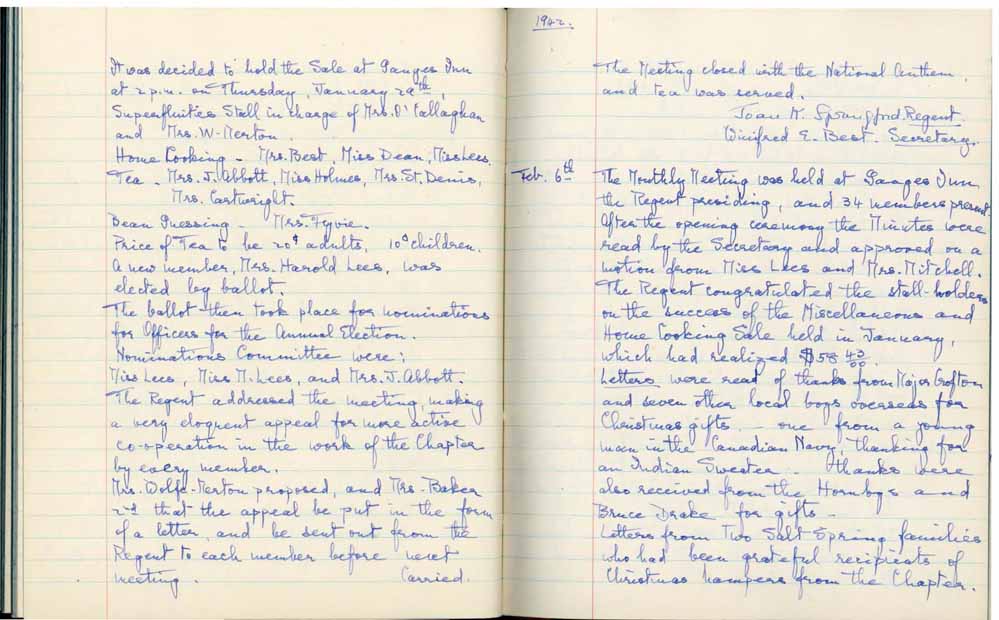 It was decided to hold the Sale at Ganges Inn
at 2 p.m. on Thursday, January 29th,
Superfluities Stall in charge of Mrs. O'Callaghan
and Mrs. W-Merton.
Home Cooking - Mrs. Best, Miss Dean, Miss Lees.
Tea - Mrs. J. Abbott, Miss Holmes, Mrs. St. Denis,
Mrs. Cartwright.
Bean Guessing - Mrs. Fyvie.
Price of Tea to be 20¢ adults, 10¢ children.
A new member, Mrs. Harold Lees, was
elected by ballot.
The ballot then took place for nominations
for Officers for the Annual Election.
Nominations Committee were:
Miss Lees, Miss M. Lees, and Mrs. J. Abbott.
The Regent addressed the meeting, making
a very eloquent appeal for more active
co-operation in the work of the Chapter
by every member.
Mrs. Wolfe-Merton proposed, and Mrs. Baker
2nd that the appeal be put in the form
of a letter, and be sent out from the
Regent to each member before next
meeting. Carried.
1942.
The Meeting closed with the National Anthem,
and tea was served.
Joan M. Springford. Regent.
Winifred E. Best. Secretary.
Feb. 6th The Monthly Meeting was held at Ganges Inn
the Regent presiding, and 34 members present.
After the opening ceremony the Minutes were
read by the Secretary and approved on a
motion from Miss Lees and Mrs. Mitchell.
The Regent congratulated the stall-holders
on the success of the Miscellaneous and
Home Cooking Sale held in January,
which had realized $58 43/00.
Letters were read of thanks from Major Crofton
and seven other local boys overseas for
Christmas gifts, - one from a young
man in the Canadian Navy, thanking for
an Indian Sweater - thanks were
also received from the Hornbys and
Bruce Drake for gifts -
Letters from Two Salt Spring families
who had been grateful recipients of
Christmas hampers from the Chapter.